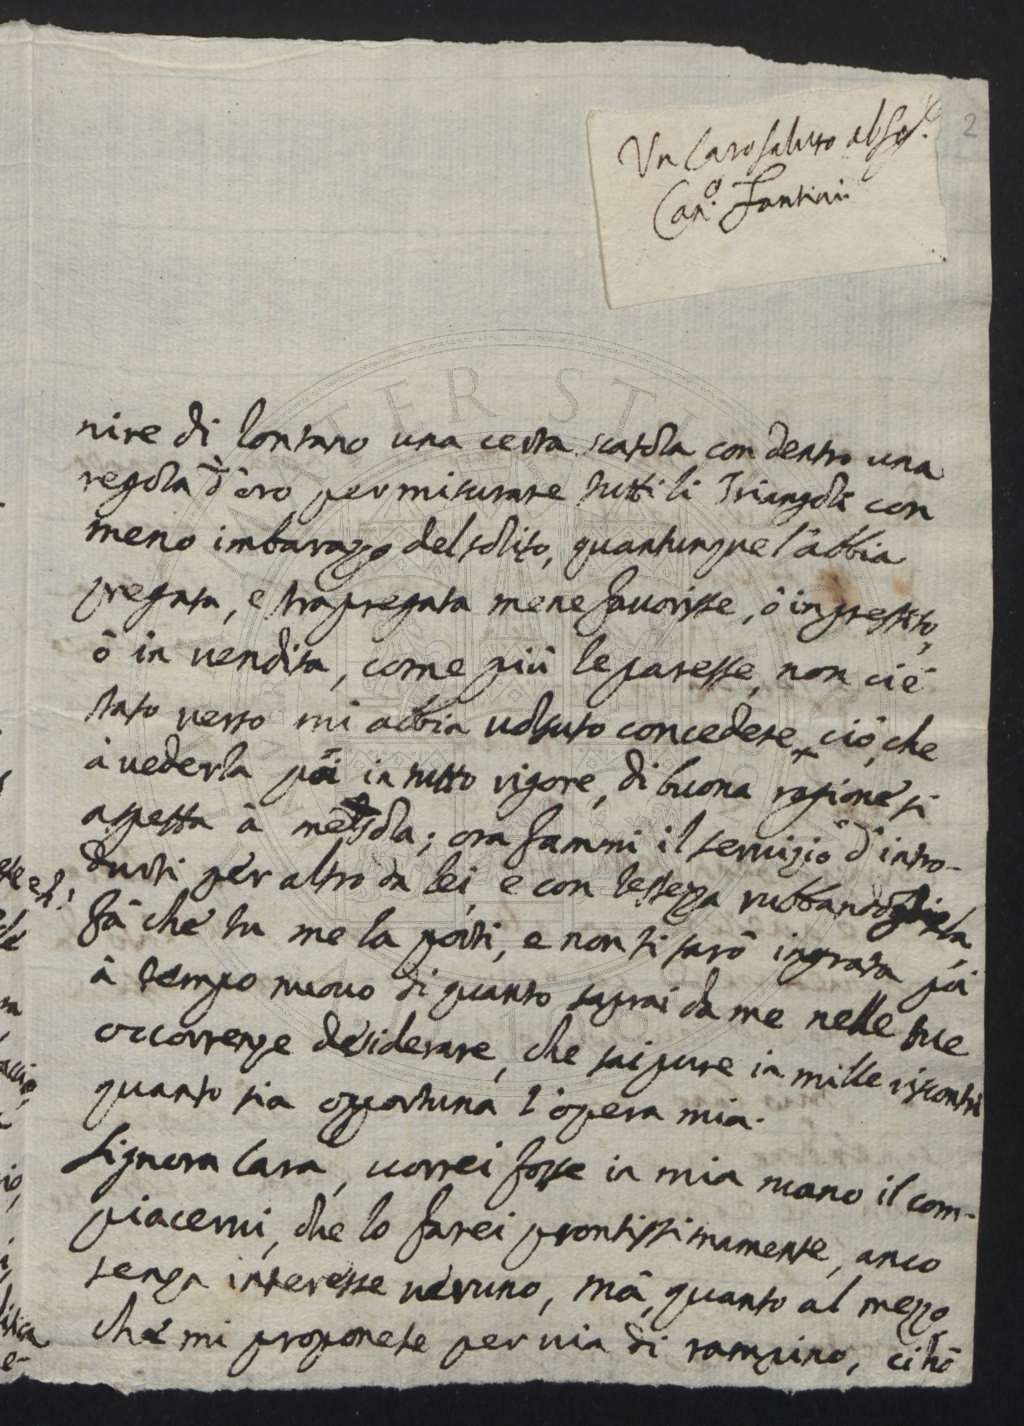 Un Caro saluto al Sig.e
Can.o Fantini
2
nire di lontano una certa scatola con dentro una
regola d'oro per misurare tutti li Triangoli con
meno imbarazzo del solito, quantunque l'abbia
pregata, e strapregata mene favorisse, ò in prestito,
ò in vendita, come più le paresse, non ci è
stato verso mi abbia voluto concedere, ciò, che
à vederla poi in tutto rigore, di buona ragione si
aspetta à me sola; ora fammi il servizio d'intro-
durti per altro da lei, e con lestezza rubbandogliela,
fà che tu me la porti, e non ti sarò ingrata poi
à tempo nuovo di quanto saprai da me nelle tue
occorrenze desiderare, che sai pure in mille riscontri
quanto sia opportuna l'opera mia.
Signora Cara, vorrei fosse in mia mano il com-
piacervi, che lo farei prontissimamente, anco
senza interesse veruno, mà, quanto al mezzo
che mi proponete per via di rampino, ci hò